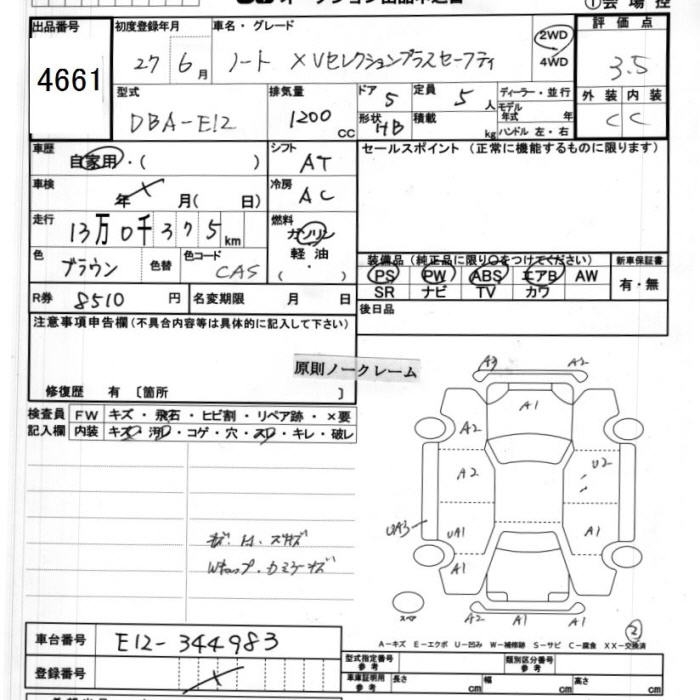 出品番号 初度登録年月 車名・グレード 評価点
4661 27年6月 ノート XVセレクションプラスセーフティ 2WD 4WD 3.5
型式 排気量 ドア 5 定員 5人 ディーラー・並行 外装 内装
DBA-E12 1200cc 形状 HB 積載 kg モデル年式 年 ハンドル 左・右 C C
車歴 自家用・( ) シフト AT セールスポイント(正常に機能するものに限ります)
車検 年 ✓ 月( 日) 冷房 AC
走行 13万0千375km 燃料 ガソリン 軽油 ・ ( )
色 ブラウン 色替 色コード CAS
装備品(純正品に限り○をつけてください) 新車保証書
PS PW ABS エアB AW 有・無
SR ナビ TV カワ
R券 8510円 名変期限 月 日 後日品
注意事項申告欄(不具合内容等は具体的に記入して下さい)
原則ノークレーム
修復歴 有 〔箇所 〕
検査員 FW キズ・飛石・ヒビ割・リペア跡・×要
記入欄 内装 キズ・汚レ・コゲ・穴・スレ・キレ・破レ
A3 A2
A1
A2
A2 U2
UA3 UA1 A1
A1 A1
スペア A2 A1 A1
2
A-キズ E-エクボ U-凹み W-補修跡 S-サビ C-腐食 XX-交換済
車台番号 E12-344983
型式指定番号 参考 類別区分番号 参考
登録番号
車庫証明用 参考 長さ cm 幅 cm 高さ cm